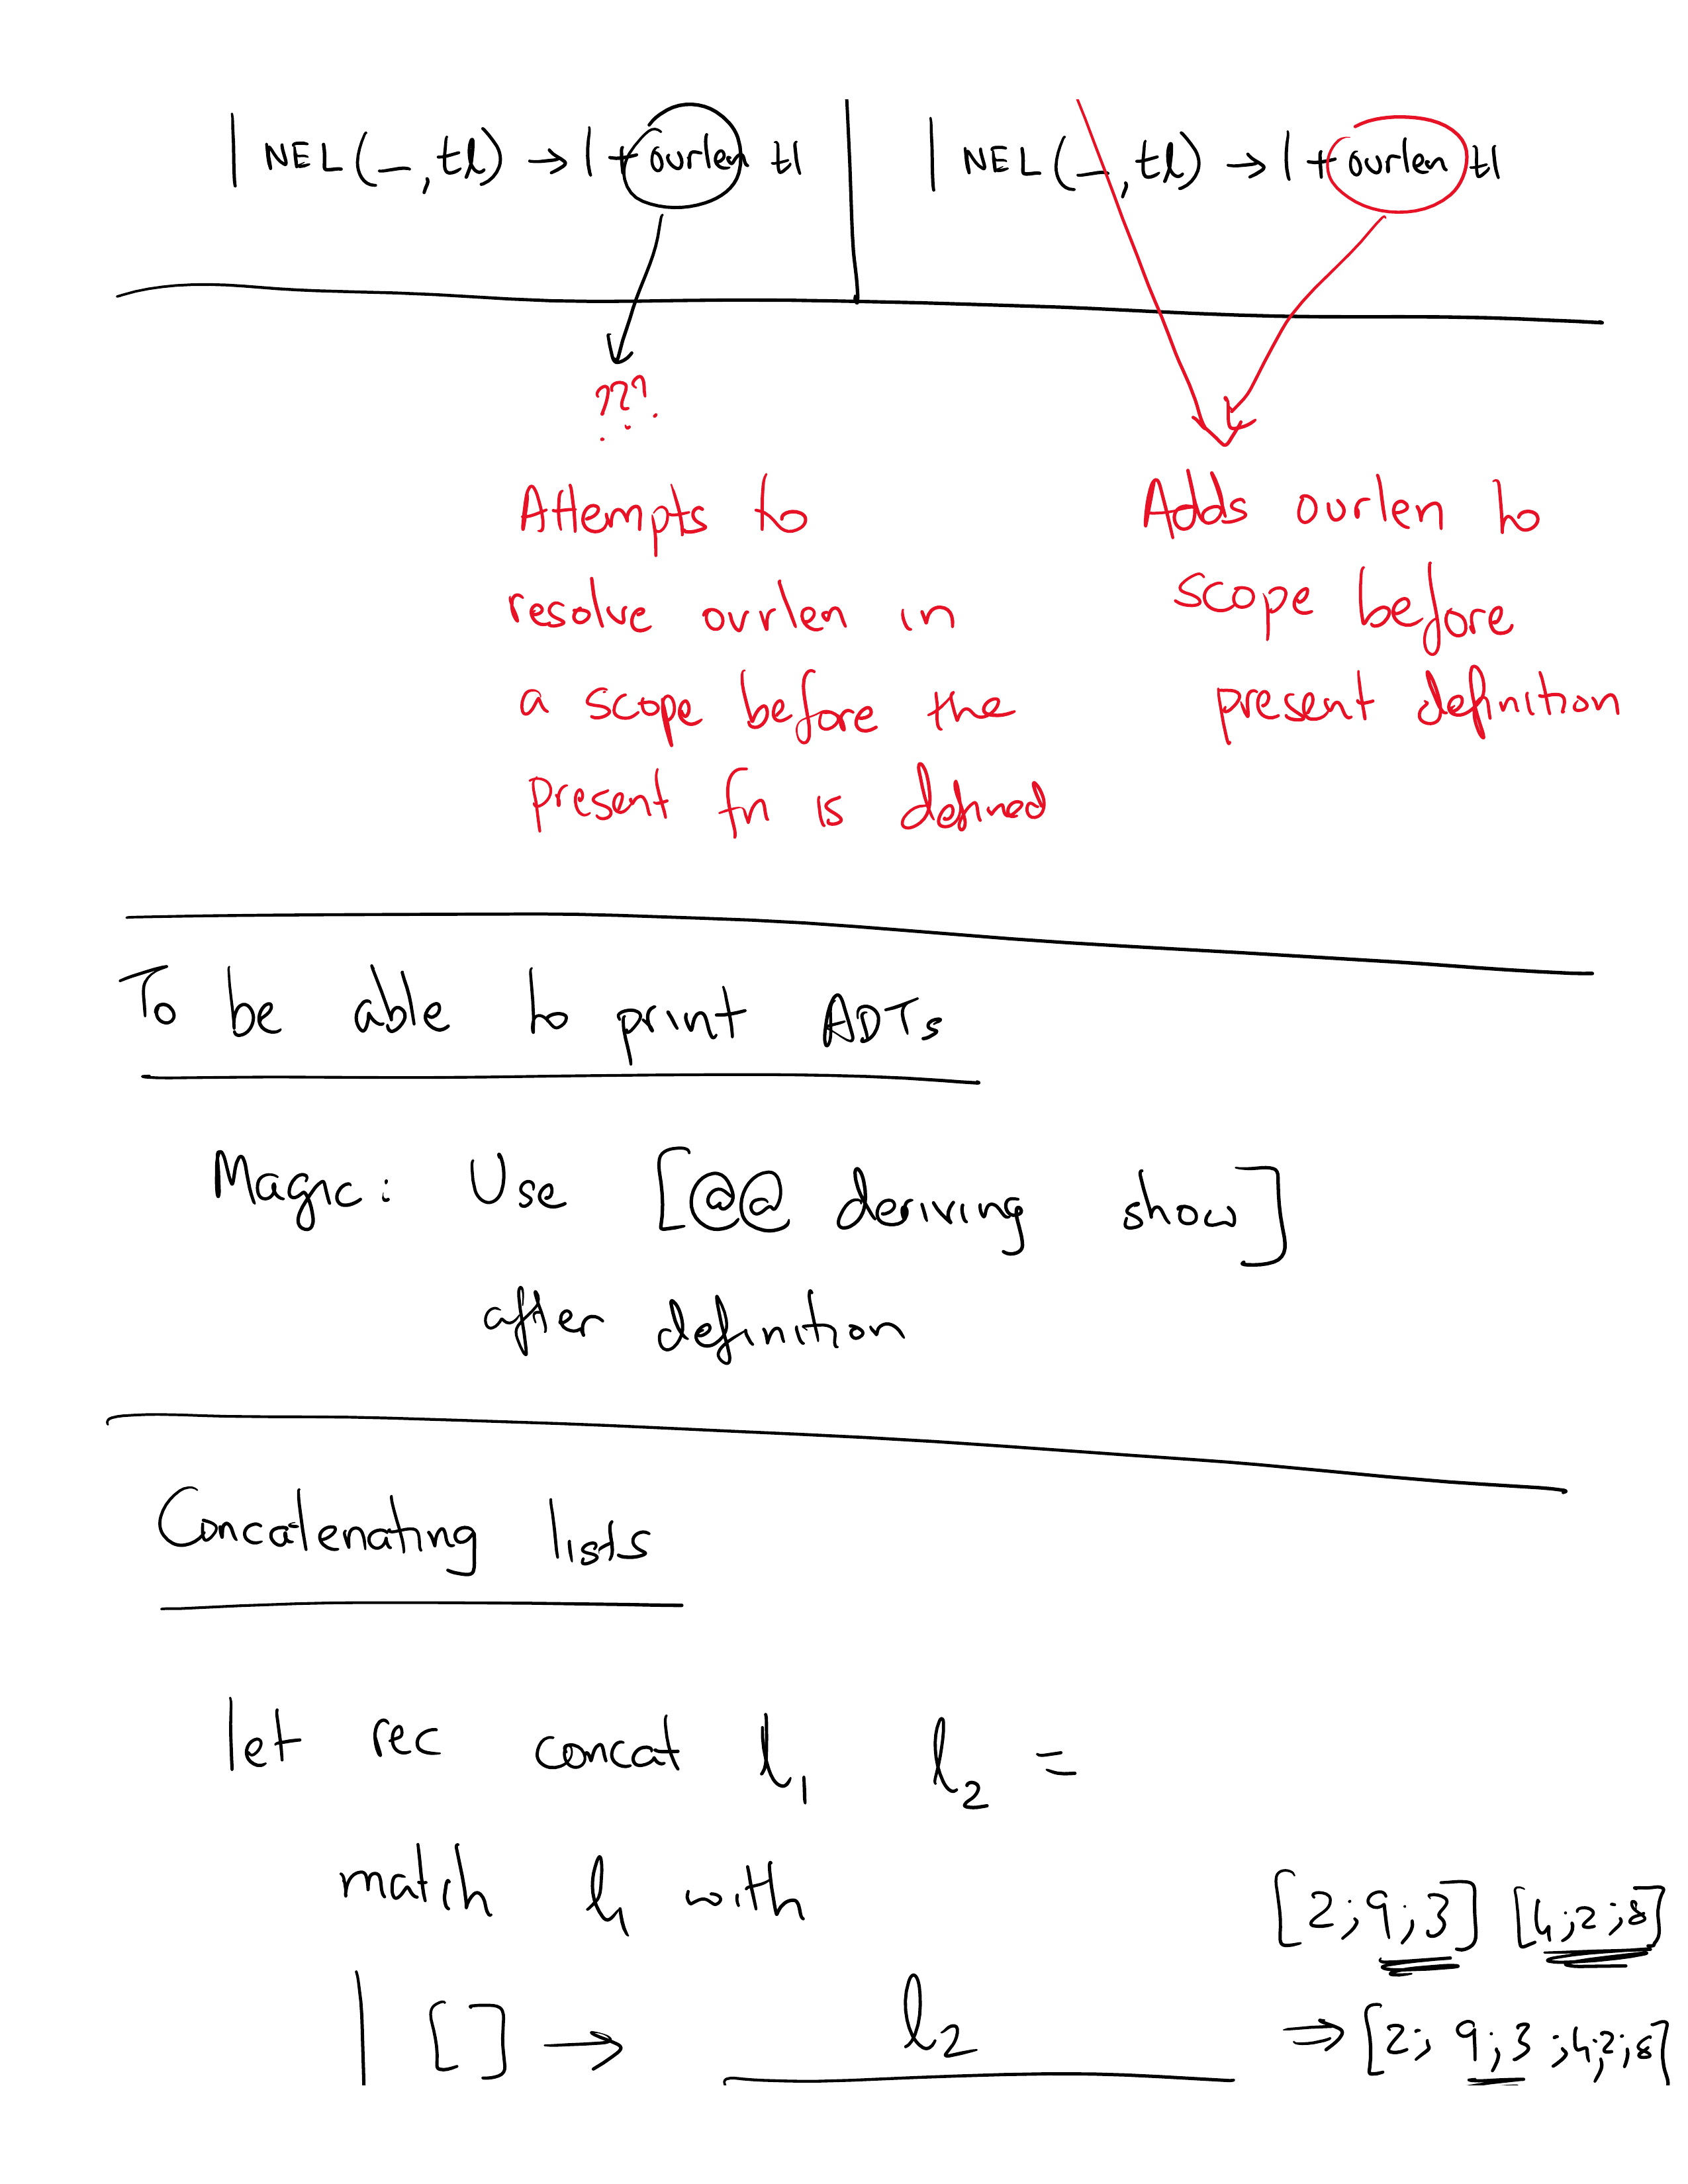 | NEL(_, tl) → 1 + ourlen tl
| NEL(_, tl) → 1 + ourlen tl
???
Attempts to
resolve ourlen in
a scope before the
present fn is defined
Adds ourlen to
scope before
present definition
To be able to print ADTs
Magic: Use [@@ deriving show]
after definition
Concatenating lists
let rec concat l₁ l₂ =
match l₁ with
[2;9;3] [4;2;8]
| [] → l₂
⇒ [2; 9;3;4;2;8]